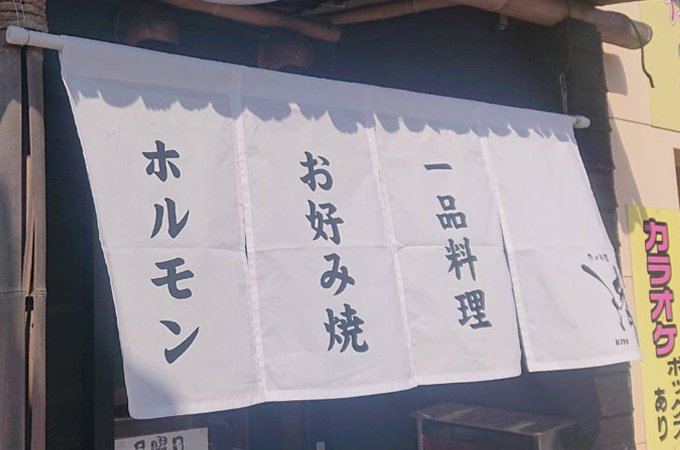 一品料理
お好み焼
ホルモン
カラオケ
ボックス
あり